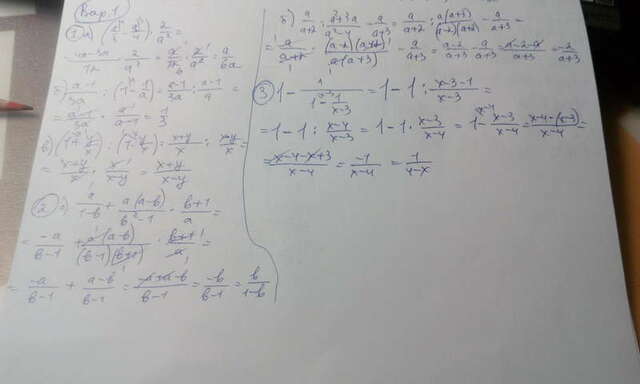 Вар. 1
б) (a-1)/3a : (1-1/a) = (a-1)/3a : (a-1)/a =
= (a-1)/3a · a/(a-1) = 1/3
в) (1+y/x) : (1-y/x) = (x+y)/x : (x-y)/x =
= (x+y)/x · x/(x-y) = (x+y)/(x-y)
② а) a/(1-b) + a(a-b)/(b²-1) · (b+1)/a =
= -a/(b-1) + a(a-b)/((b-1)(b+1)) · (b+1)/a =
= -a/(b-1) + (a-b)/(b-1) = (-a+a-b)/(b-1) = -b/(b-1) = b/(1-b)
б) a/(a+2) : (a²+3a)/(a²-4) - a/(a+3) = a/(a+2) : a(a+3)/((a-2)(a+2)) - a/(a+3) =
= a/(a+2) · (a-2)(a+2)/(a(a+3)) - a/(a+3) = (a-2)/(a+3) - a/(a+3) = (a-2-a)/(a+3) = -2/(a+3)
③ 1 - 1/(1-1/(x-3)) = 1-1 : (x-3-1)/(x-3) =
= 1-1 : (x-4)/(x-3) = 1-1 · (x-3)/(x-4) = 1 - (x-3)/(x-4) = (x-4-(x-3))/(x-4) =
= (x-4-x+3)/(x-4) = -1/(x-4) = 1/(4-x)